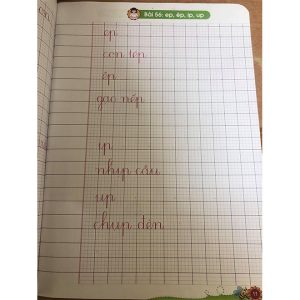 Bài 56: ep, êp, ip, up
ep
con tép
êp
gạo nếp
ip
nhịp cầu
up
chụp đèn